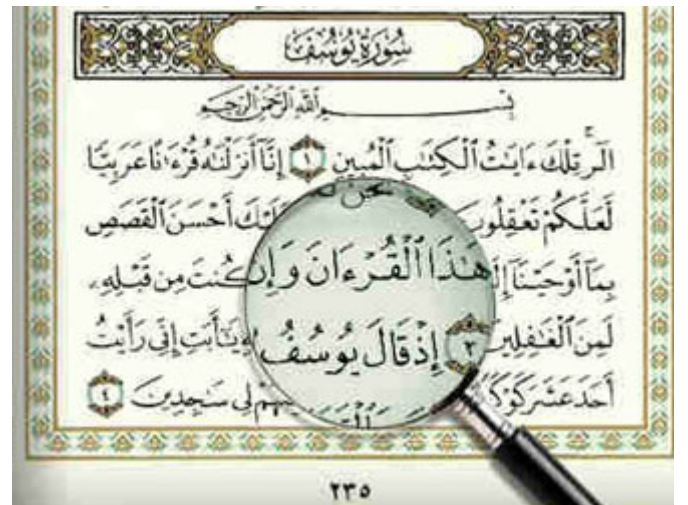 سُورَةُ يُوسُفَ
بِسْمِ ٱللَّهِ ٱلرَّحْمَٰنِ ٱلرَّحِيمِ
الٓر تِلْكَ ءَايَٰتُ ٱلْكِتَٰبِ ٱلْمُبِينِ ١ إِنَّآ أَنزَلْنَٰهُ قُرْءَٰنًا عَرَبِيًّا
لَّعَلَّكُمْ تَعْقِلُونَ نَحْنُ أَحْسَنَ ٱلْقَصَصِ
بِمَآ أَوْحَيْنَآ هَٰذَا ٱلْقُرْءَانَ وَإِن كُنتَ مِن قَبْلِهِۦ
لَمِنَ ٱلْغَٰفِلِينَ ٣ إِذْ قَالَ يُوسُفُ يَٰٓأَبَتِ إِنِّى رَأَيْتُ
أَحَدَ عَشَرَ كَوْكَبًا لِى سَٰجِدِينَ ٤
٢٣٥